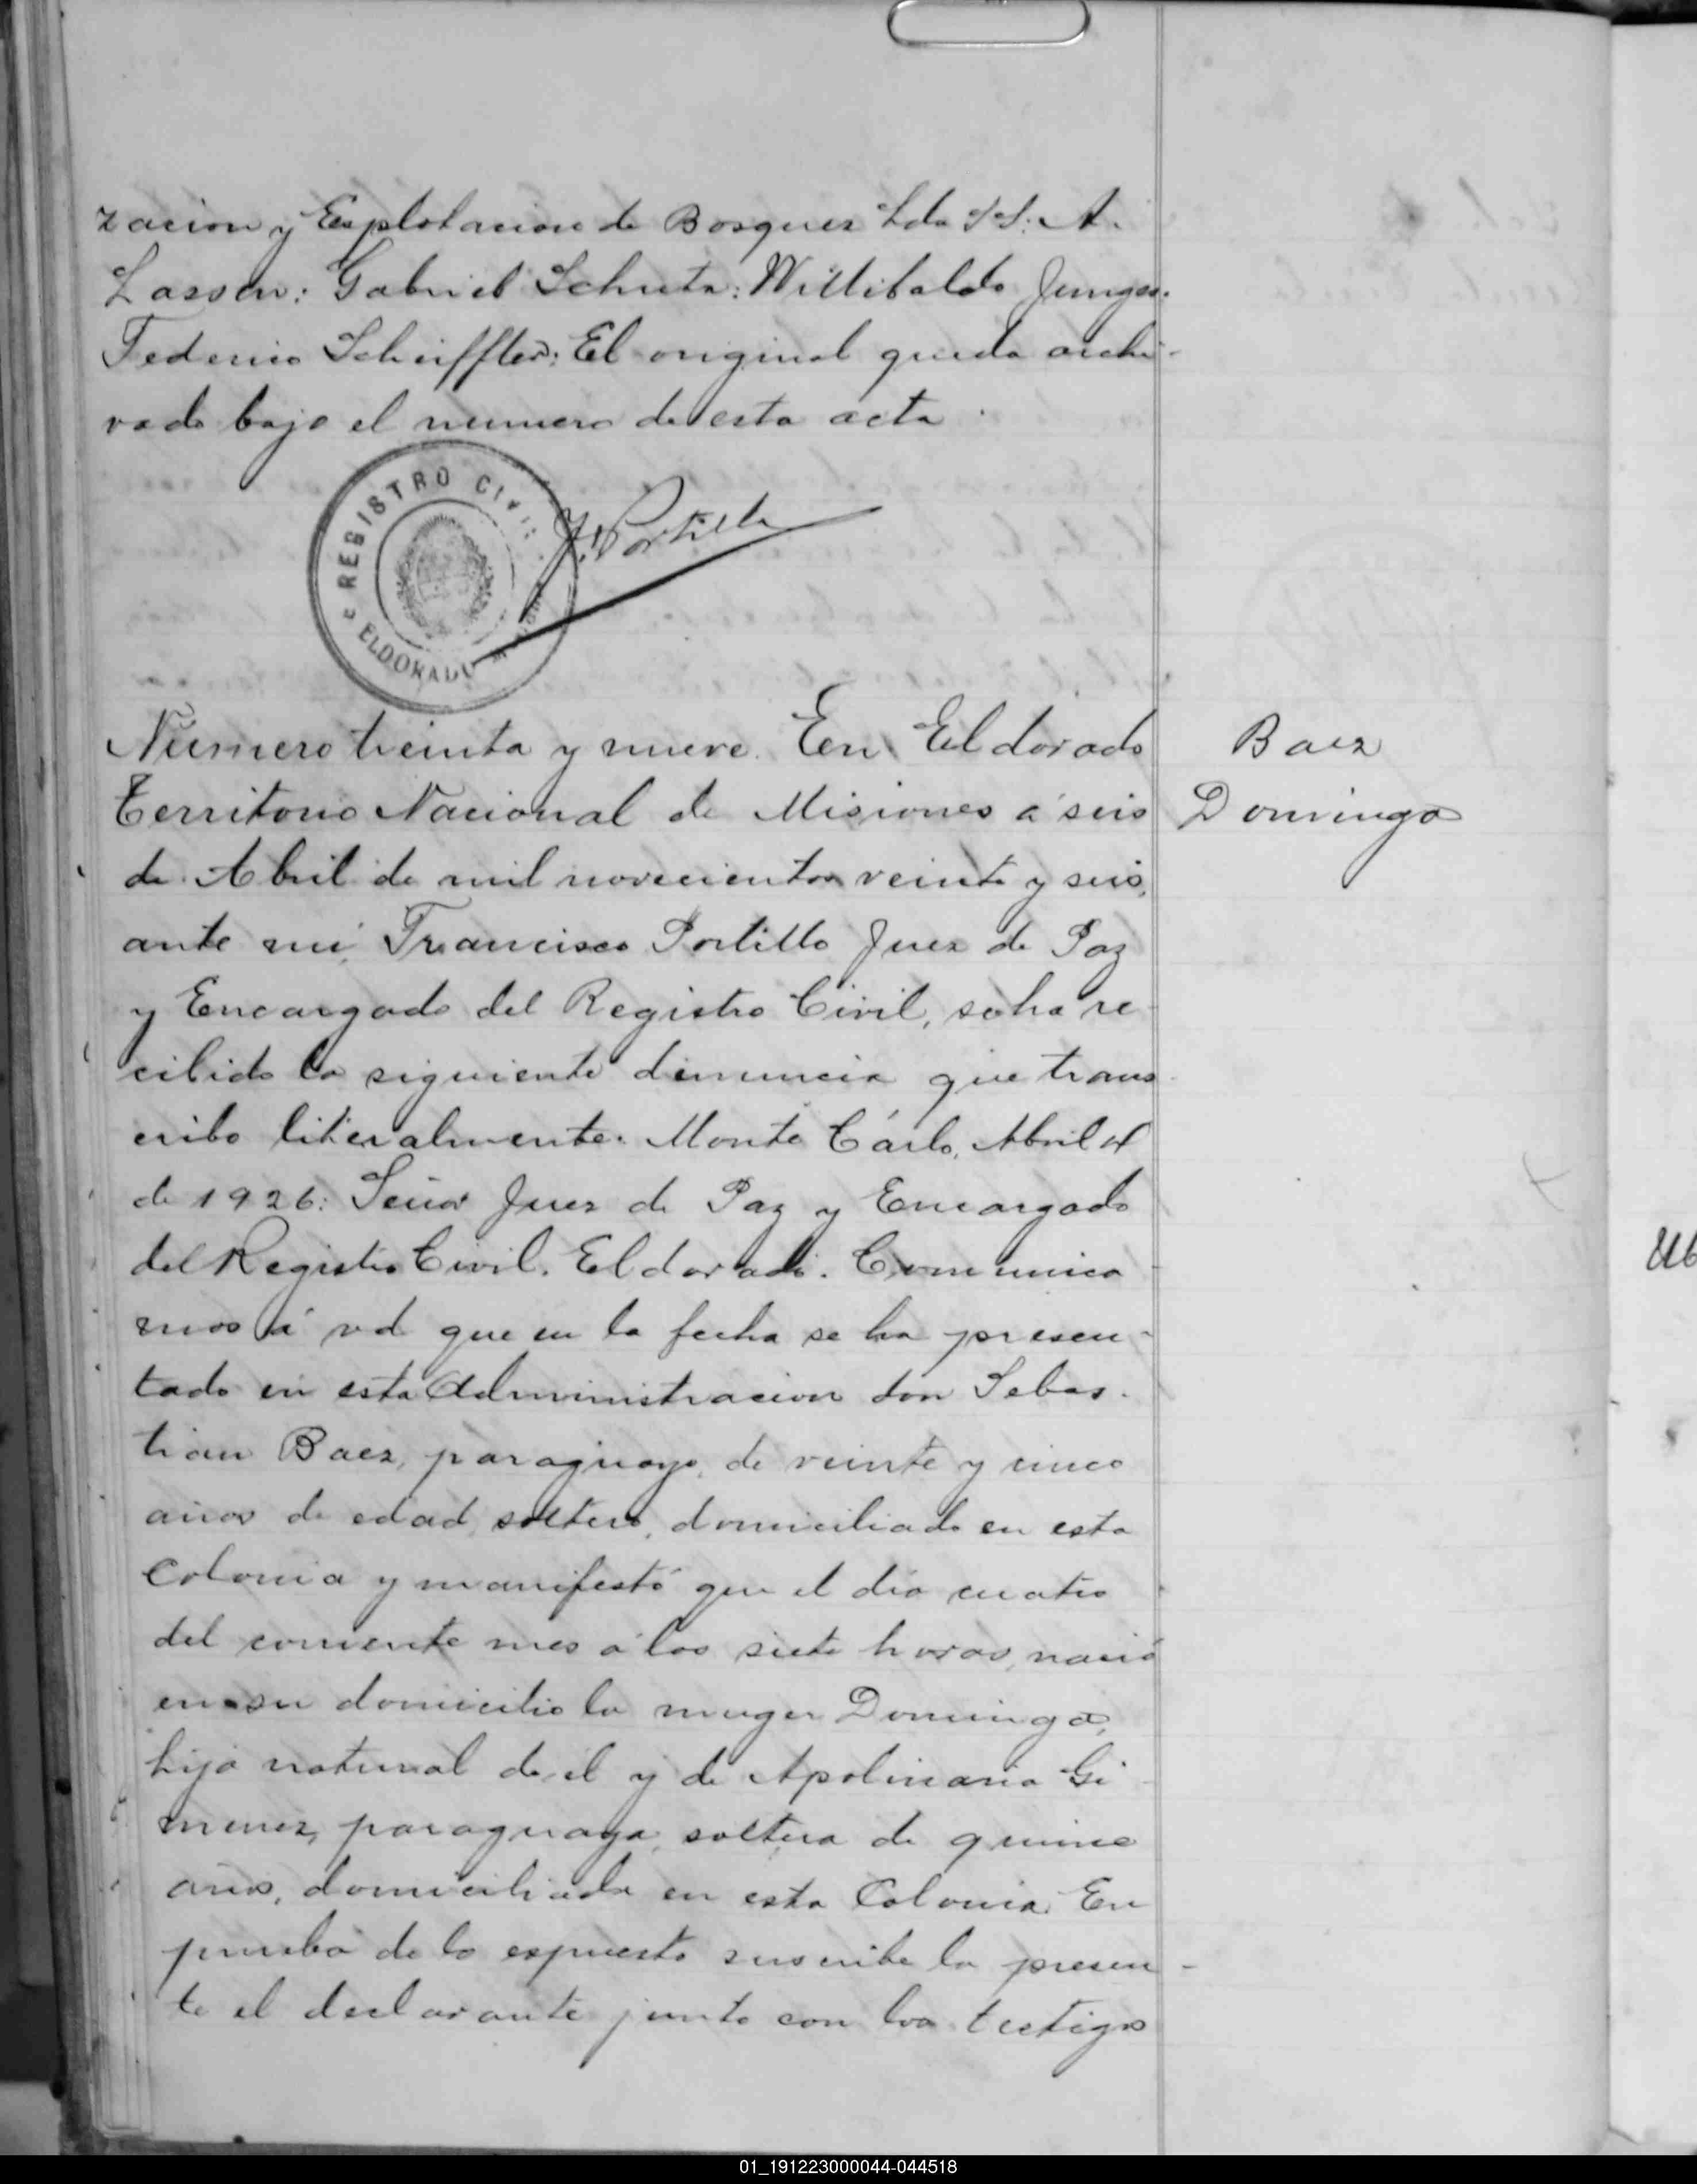 zacion y Explotacion de Bosques Lda S. A.
Lassen: Gabriel Schuta: Willibaldo Junges.
Federico Scheiffler: El original queda archi-
vado bajo el numero de esta acta.
REGISTRO CIVIL
ELDORADO
J. Portillo
Numero treinta y nueve. En Eldorado
Territorio Nacional de Misiones á seis
de Abril de mil novecientos veinte y seis,
ante mi, Francisco Portillo Juez de Paz
y Encargado del Registro Civil, se ha re
cibido la siguiente denuncia que trans-
cribo literalmente. Monte Cárlo, Abril 4
de 1926: Señor Juez de Paz y Encargado
del Registro Civil. Eldorado. Comunica
mos á vd que en la fecha se ha presen-
tado en esta Administracion don Sebas-
tian Baez, paraguayo, de veinte y cinco
años de edad, soltero, domiciliado en esta
Colonia y manifestó que el dia cuatro
del corriente mes á las siete horas, nació
en su domicilio la muger Domínga,
hija natural de el y de Apolinaria Gi-
menez, paraguaya, soltera de quince
años, domiciliada en esta Colonia. En
prueba de lo espuesto suscribe la presen-
te el declarante junto con los testigos
Baez
Dominga
01_191223000044-044518